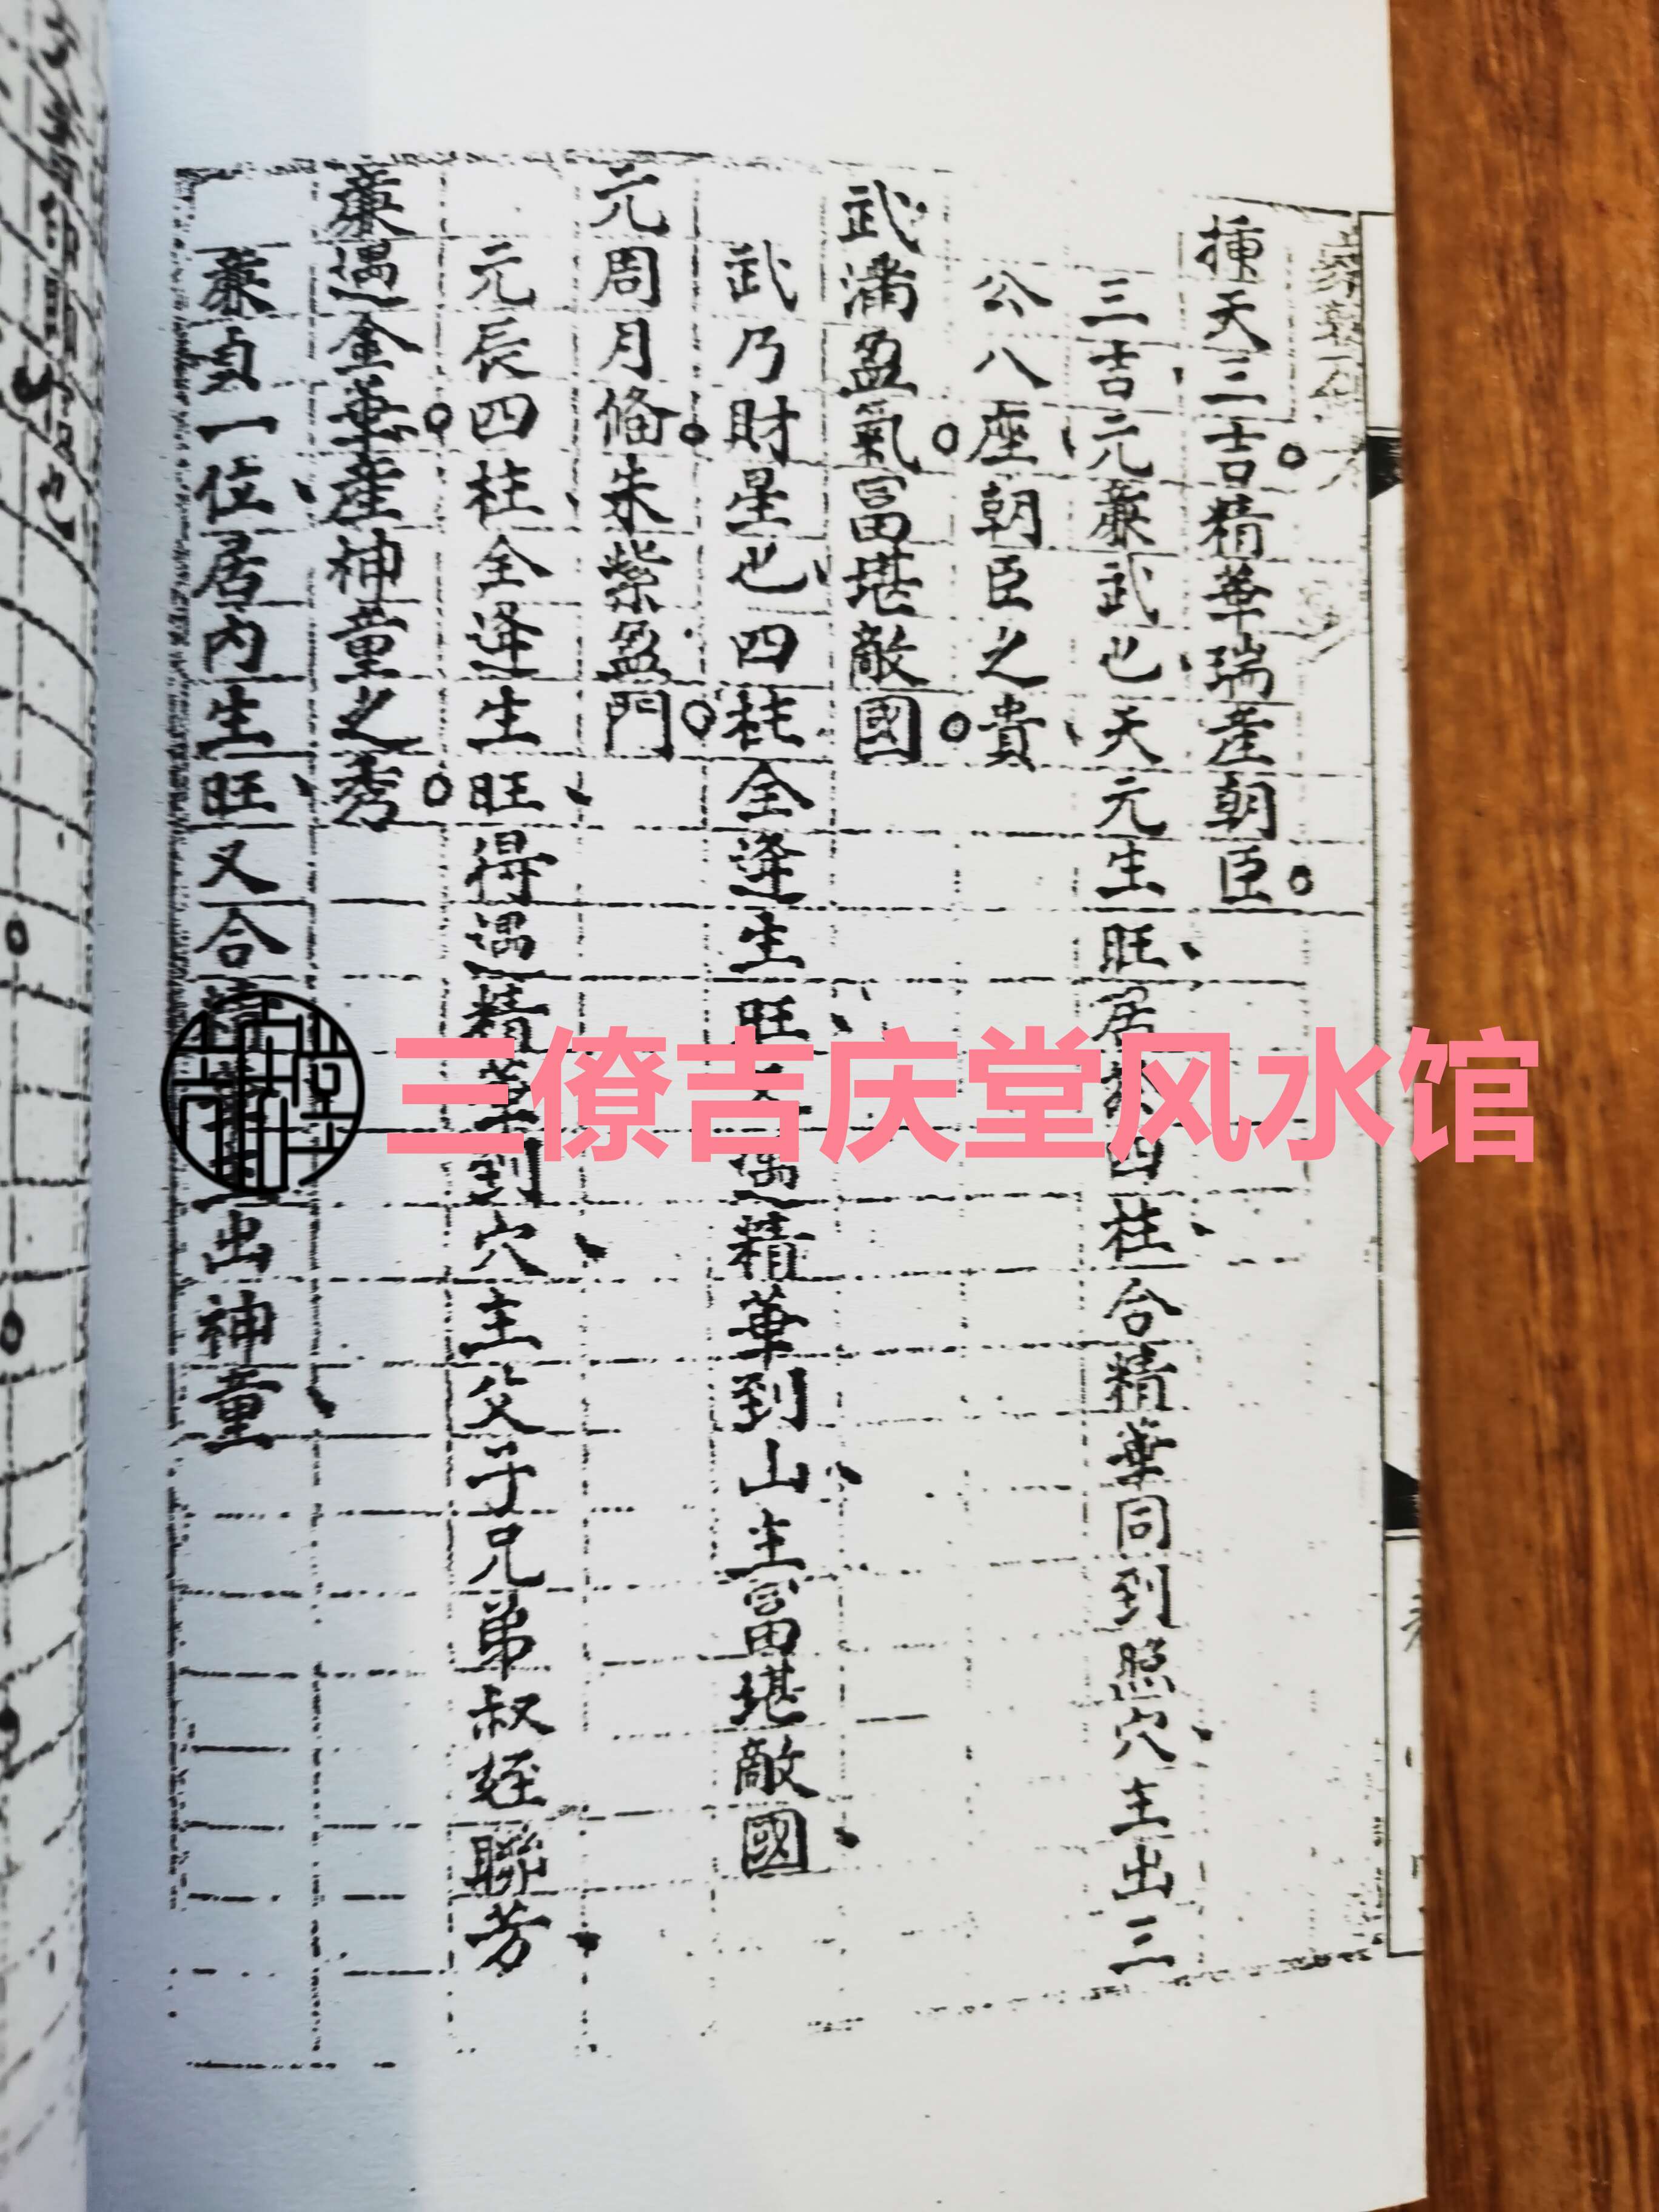 種天三吉精華瑞產朝臣
三吉元廉武也天元生旺居於四柱合精華同到照穴主出三
公八座朝臣之貴
武滿盈氣富堪敵國
武乃財星也四柱全逢生旺又遇精華到山主富堪敵國
元周月俻朱紫盈門
元長四柱全逢生旺得遇精華到穴主父子兄弟叔姪聯芳
廉遇金車產神童之秀
廉貞一位居內生旺又合出神童
三僚吉庆堂风水馆